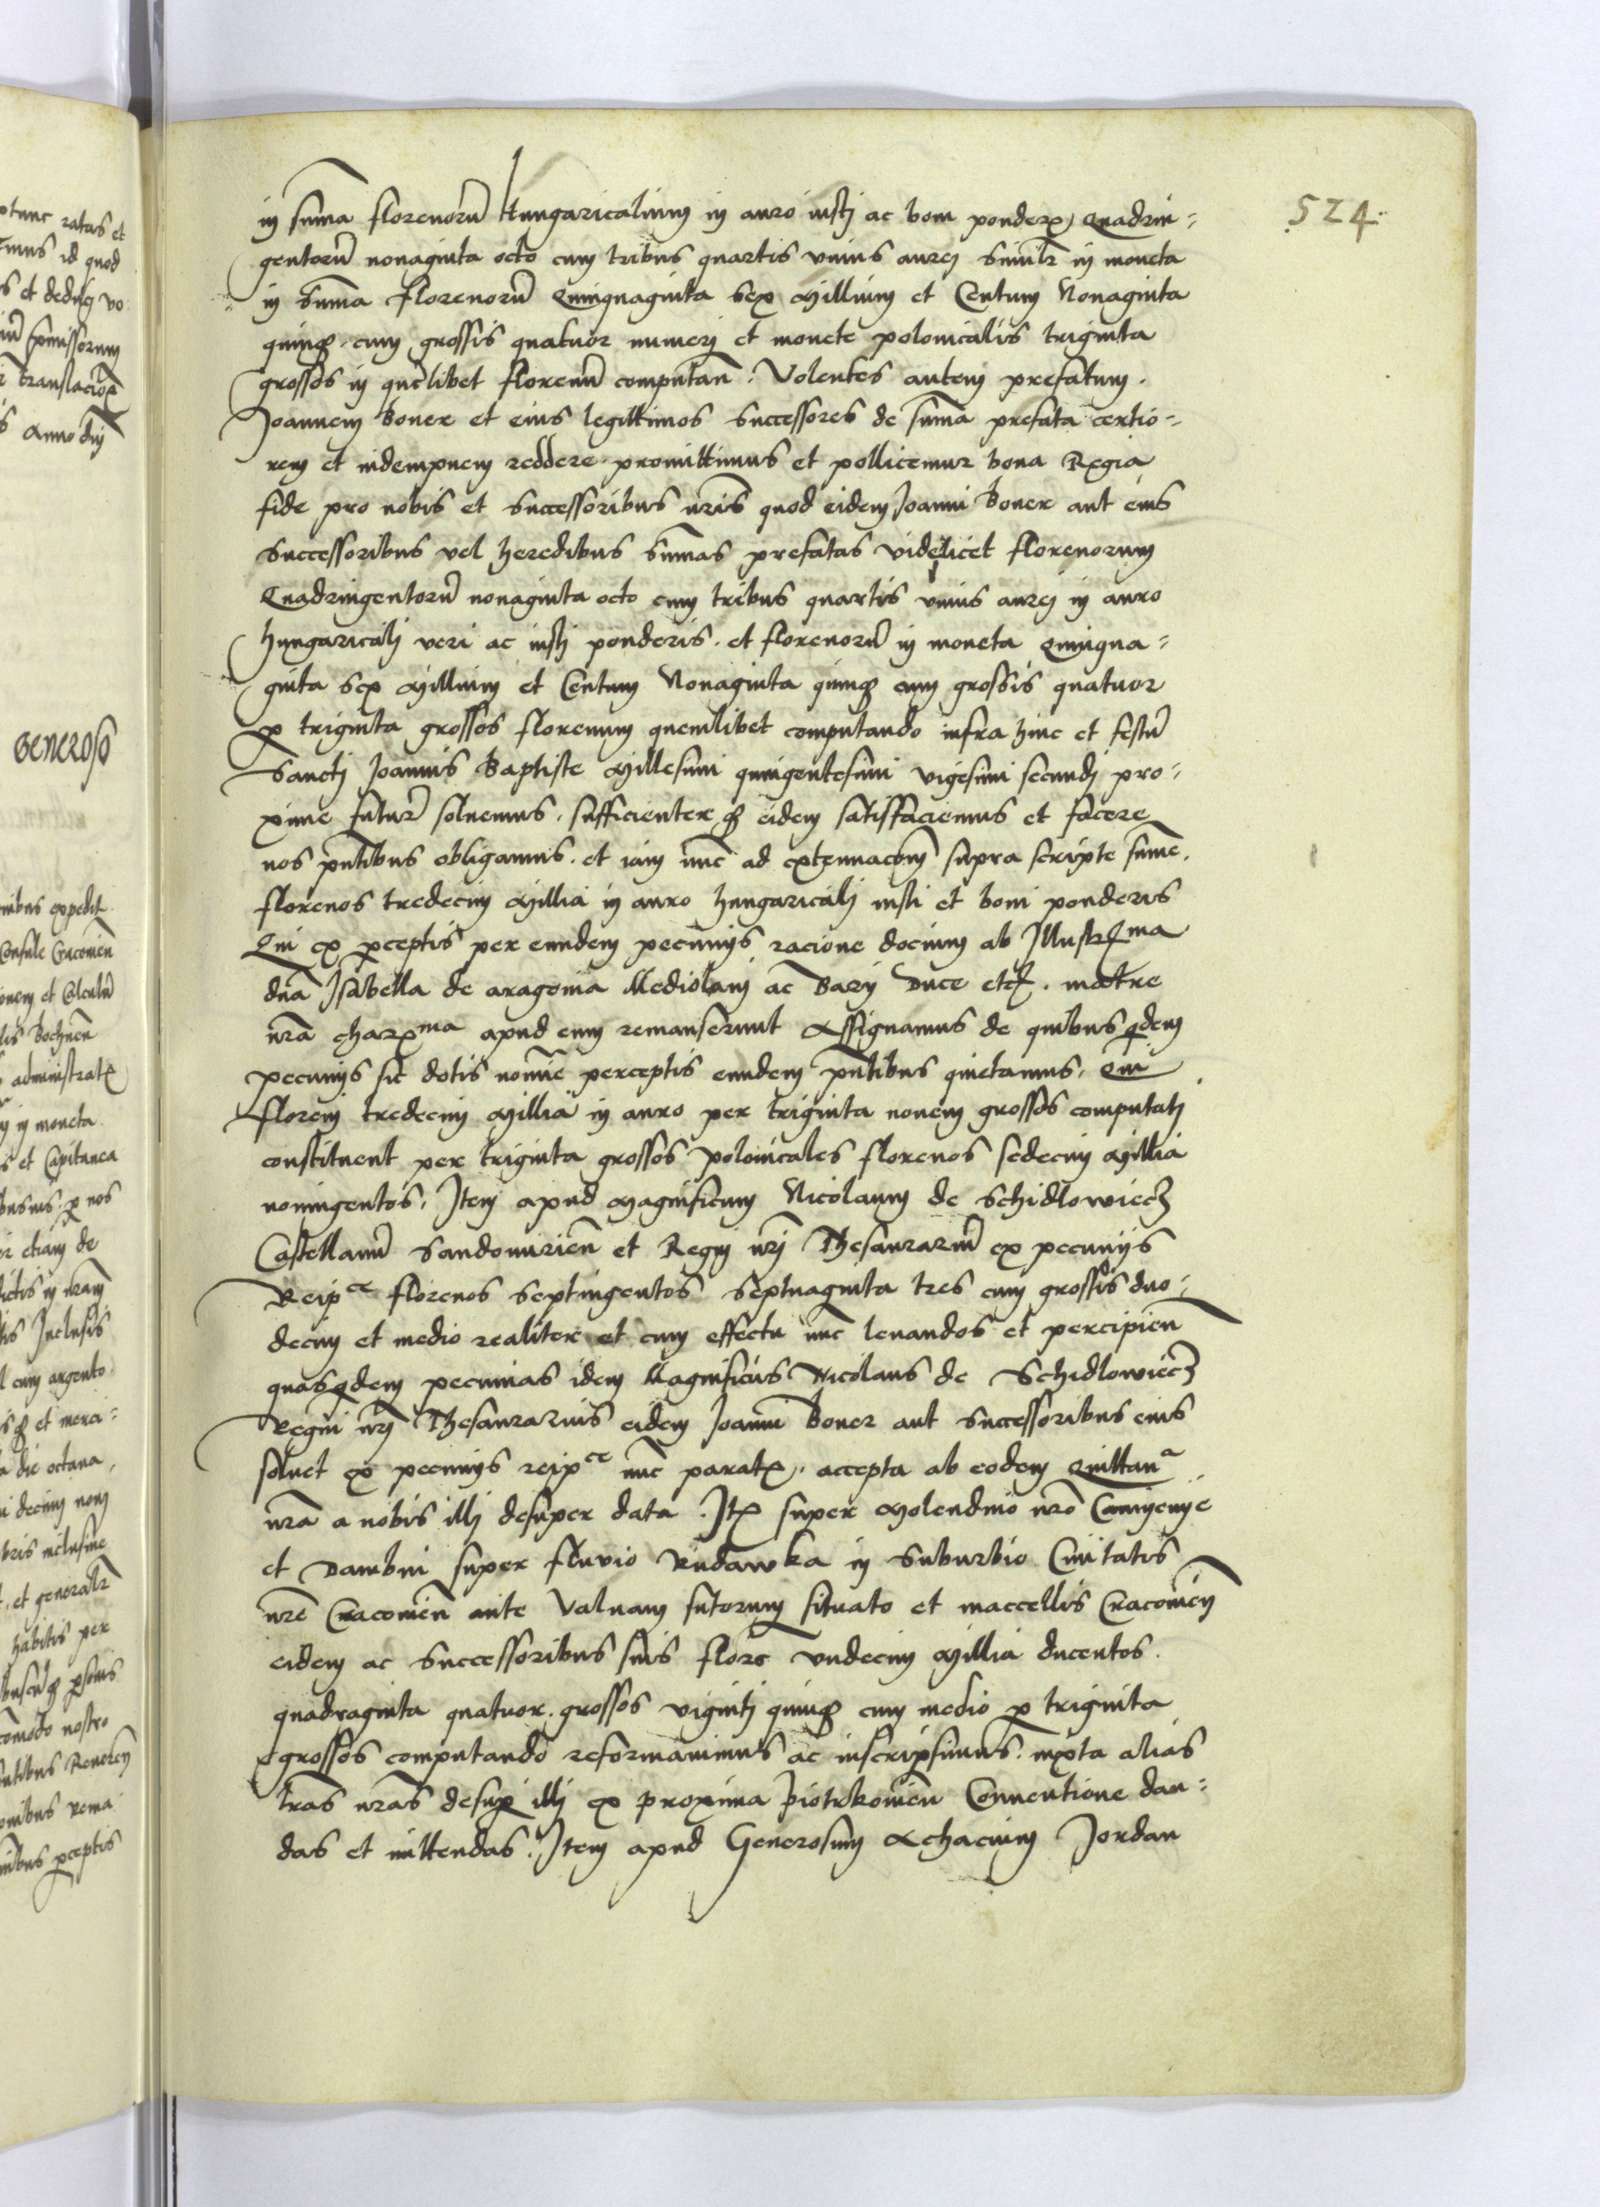 524
in sum̄a florenorū Hungaricalium in auro iusti ac boni ponderꝭ Quadrin-
gentorū nonaginta octo cum tribus quartis vnius aurei Similr̄ in moneta
in Sum̄a florenorū Quinquaginta sex Millium et Centum Nonaginta
quinqꝫ cum grossis quatuor numeri et monete polonicalis triginta
grossos in quēlibet florenū computan̄. Volentes autem prefatum
Joannem Boner et eius legittimos successores de sum̄a prefata certio-
rem et indempnem reddere promittimus et pollicemur bona Regia
fide pro nobis et successoribus nr̄is quod eidem Joanni Boner aut eius
successoribus vel heredibus Sum̄as prefatas videlicet florenorum
Quadringentorū nonaginta octo cum tribus quartis vnius aurei in auro
hungaricali veri ac iusti ponderis et florenorū in moneta Quinqua-
ginta sex Millium et Centum Nonaginta quinqꝫ cum grossis quatuor
ꝑ triginta grossos florenum quemlibet computando infra hinc et festū
Sancti Joannis Baptiste Millesimi quingentesimi vigesimi secundi pro-
xime futur̄ soluemus, sufficienterqꝫ eidem satisfaciemus et facere
nos pn̄tibus obligamus. et iam nūc ad extenuacōnem supra scripte sum̄e
florenos tredecim Millia in auro hungaricali iusti et boni ponderis
Qui ex ꝑceptis per eundem pecunijs racione docium ab Illustꝭma
dn̄a Isabella de aragonia Mediolani ac Barij Duce etcꝭ. matre
nr̄a charꝭma apud eum remanserunt Assignamus de quibusqdem
pecunijs sic dotis nomīe perceptis eundem pn̄tibus quietamus. Qui
floreni tredecim Millia in auro per triginta nouem grossos computati
constituent per triginta grossos polonicales florenos sedecim Millia
noningentos. Item apud Magnificum Nicolaum de Schidlowiecz
Castellanū Sandomirien̄ et Regni nr̄i Thesaurariū ex pecunijs
Reipce florenos septingentos septuaginta tres cum grossis duo-
decim et medio realiter et cum effectu nūc leuandos et percipien̄
quasqdem pecunias idem Magnificus Nicolaus de Schidlowiecz
Regni nr̄i Thesaurarius eidem Joanni Boner aut Successoribus eius
soluet ex pecunijs reipce nūc paratꝭ. accepta ab eodem Quittana
nr̄a a nobis illi desuper data. Itꝭ super Molendino nrō Camyenye
et Dambni super fluuio Rudawka in Suburbio Ciuitatis
nr̄e Cracouien̄ ante Valuam sutorum situato et maccellis Cracouien̄
eidem ac Successoribus suis flore vndecim Millia ducentos
quadraginta quatuor. grossos viginti quinqꝫ cum medio ꝑ triginta
grossos computando reformauimus ac inscripsimus. iuxta alias
lr̄as nr̄as desuꝑ illi ex proxima piotrkouien̄ Conuentione dan-
das et mittendas. Item apud Generosum Achacium Jordan
Generoso